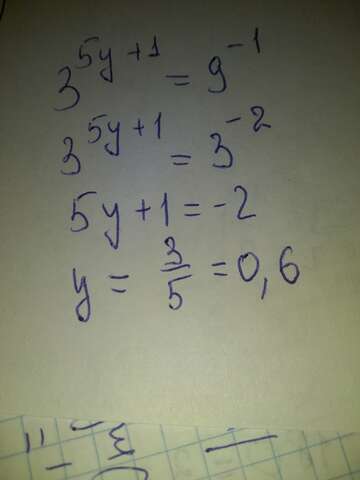 3^{5y+1} = 9^{-1}
3^{5y+1} = 3^{-2}
5y+1=-2
y = \frac{3}{5} = 0,6